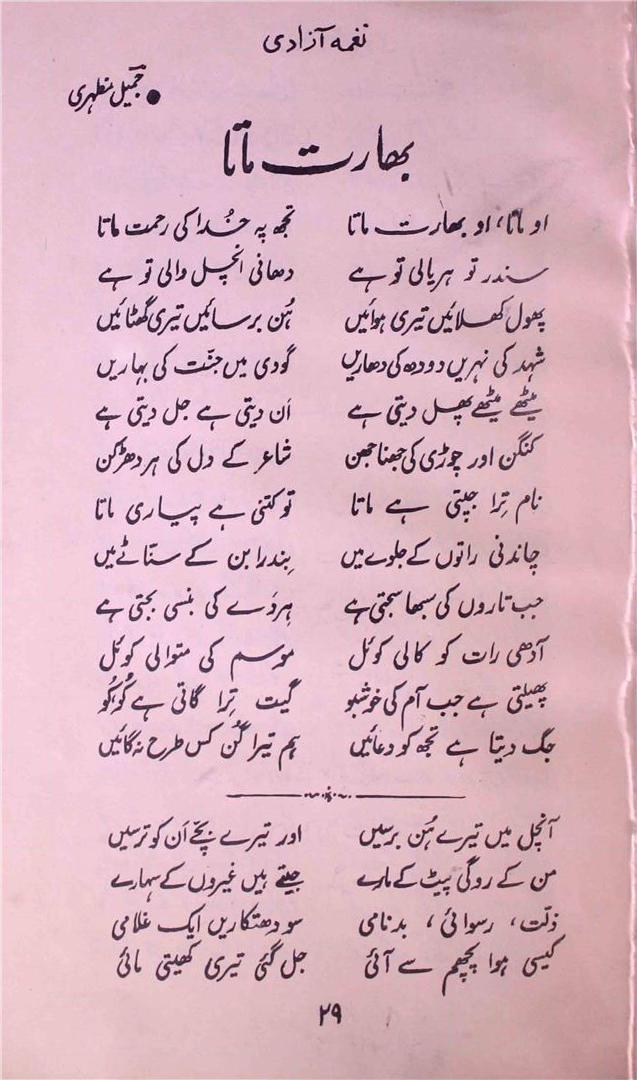 نغمہ آزادی
● جمیل مظہری
بھارت ماتا
او ماتا، او بھارت ماتا تجھ پہ خُدا کی رحمت ماتا
سندر تو ہریالی تو ہے دھانی انچل والی تو ہے
پھول کھلائیں تیری ہوائیں ہُن برسائیں تیری گھٹائیں
شہد کی نہریں دودھ کی دھاریں گودی میں جنّت کی بہاریں
میٹھے میٹھے پھل دیتی ہے اَن دیتی ہے جل دیتی ہے
کنگن اور چوڑی کی جھنا جھن شاعر کے دل کی ہر دھڑکن
نام تِرا جپتی ہے ماتا تو کتنی ہے پیاری ماتا
چاندنی راتوں کے جلوے میں بِندرابن کے سنّاٹے میں
جب تاروں کی سبھا سجتی ہے ہردَے کی بنسی بجتی ہے
آدھی رات کو کالی کوئل موسم کی متوالی کوئل
پھیلتی ہے جب آم کی خوشبو گیت تِرا گاتی ہے کُو کُو
جگ دیتا ہے تجھ کو دعائیں ہم تیرا گُن کس طرح نہ گائیں
آنچل میں تیرے ہُن برسیں اور تیرے بچّے اَن کو ترسیں
من کے روگی پیٹ کے مارے جیتے ہیں غیروں کے سہارے
ذلّت، رسوائی، بدنامی سو دھتکاریں ایک غلامی
کیسی ہوا پچھم سے آئی جل گئی تیری کھیتی مائی
۲۹